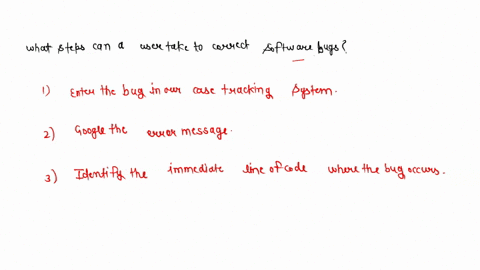 what steps can a user take to correct software bugs?
1) Enter the bug in our case tracking system.
2) Google the error message.
3) Identify the immediate line of code where the bug occurs.